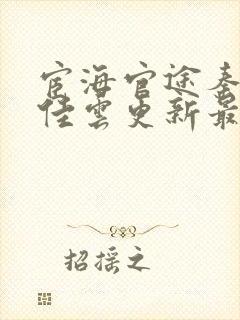 宦海官途秦
佳雲更新最
招摇之